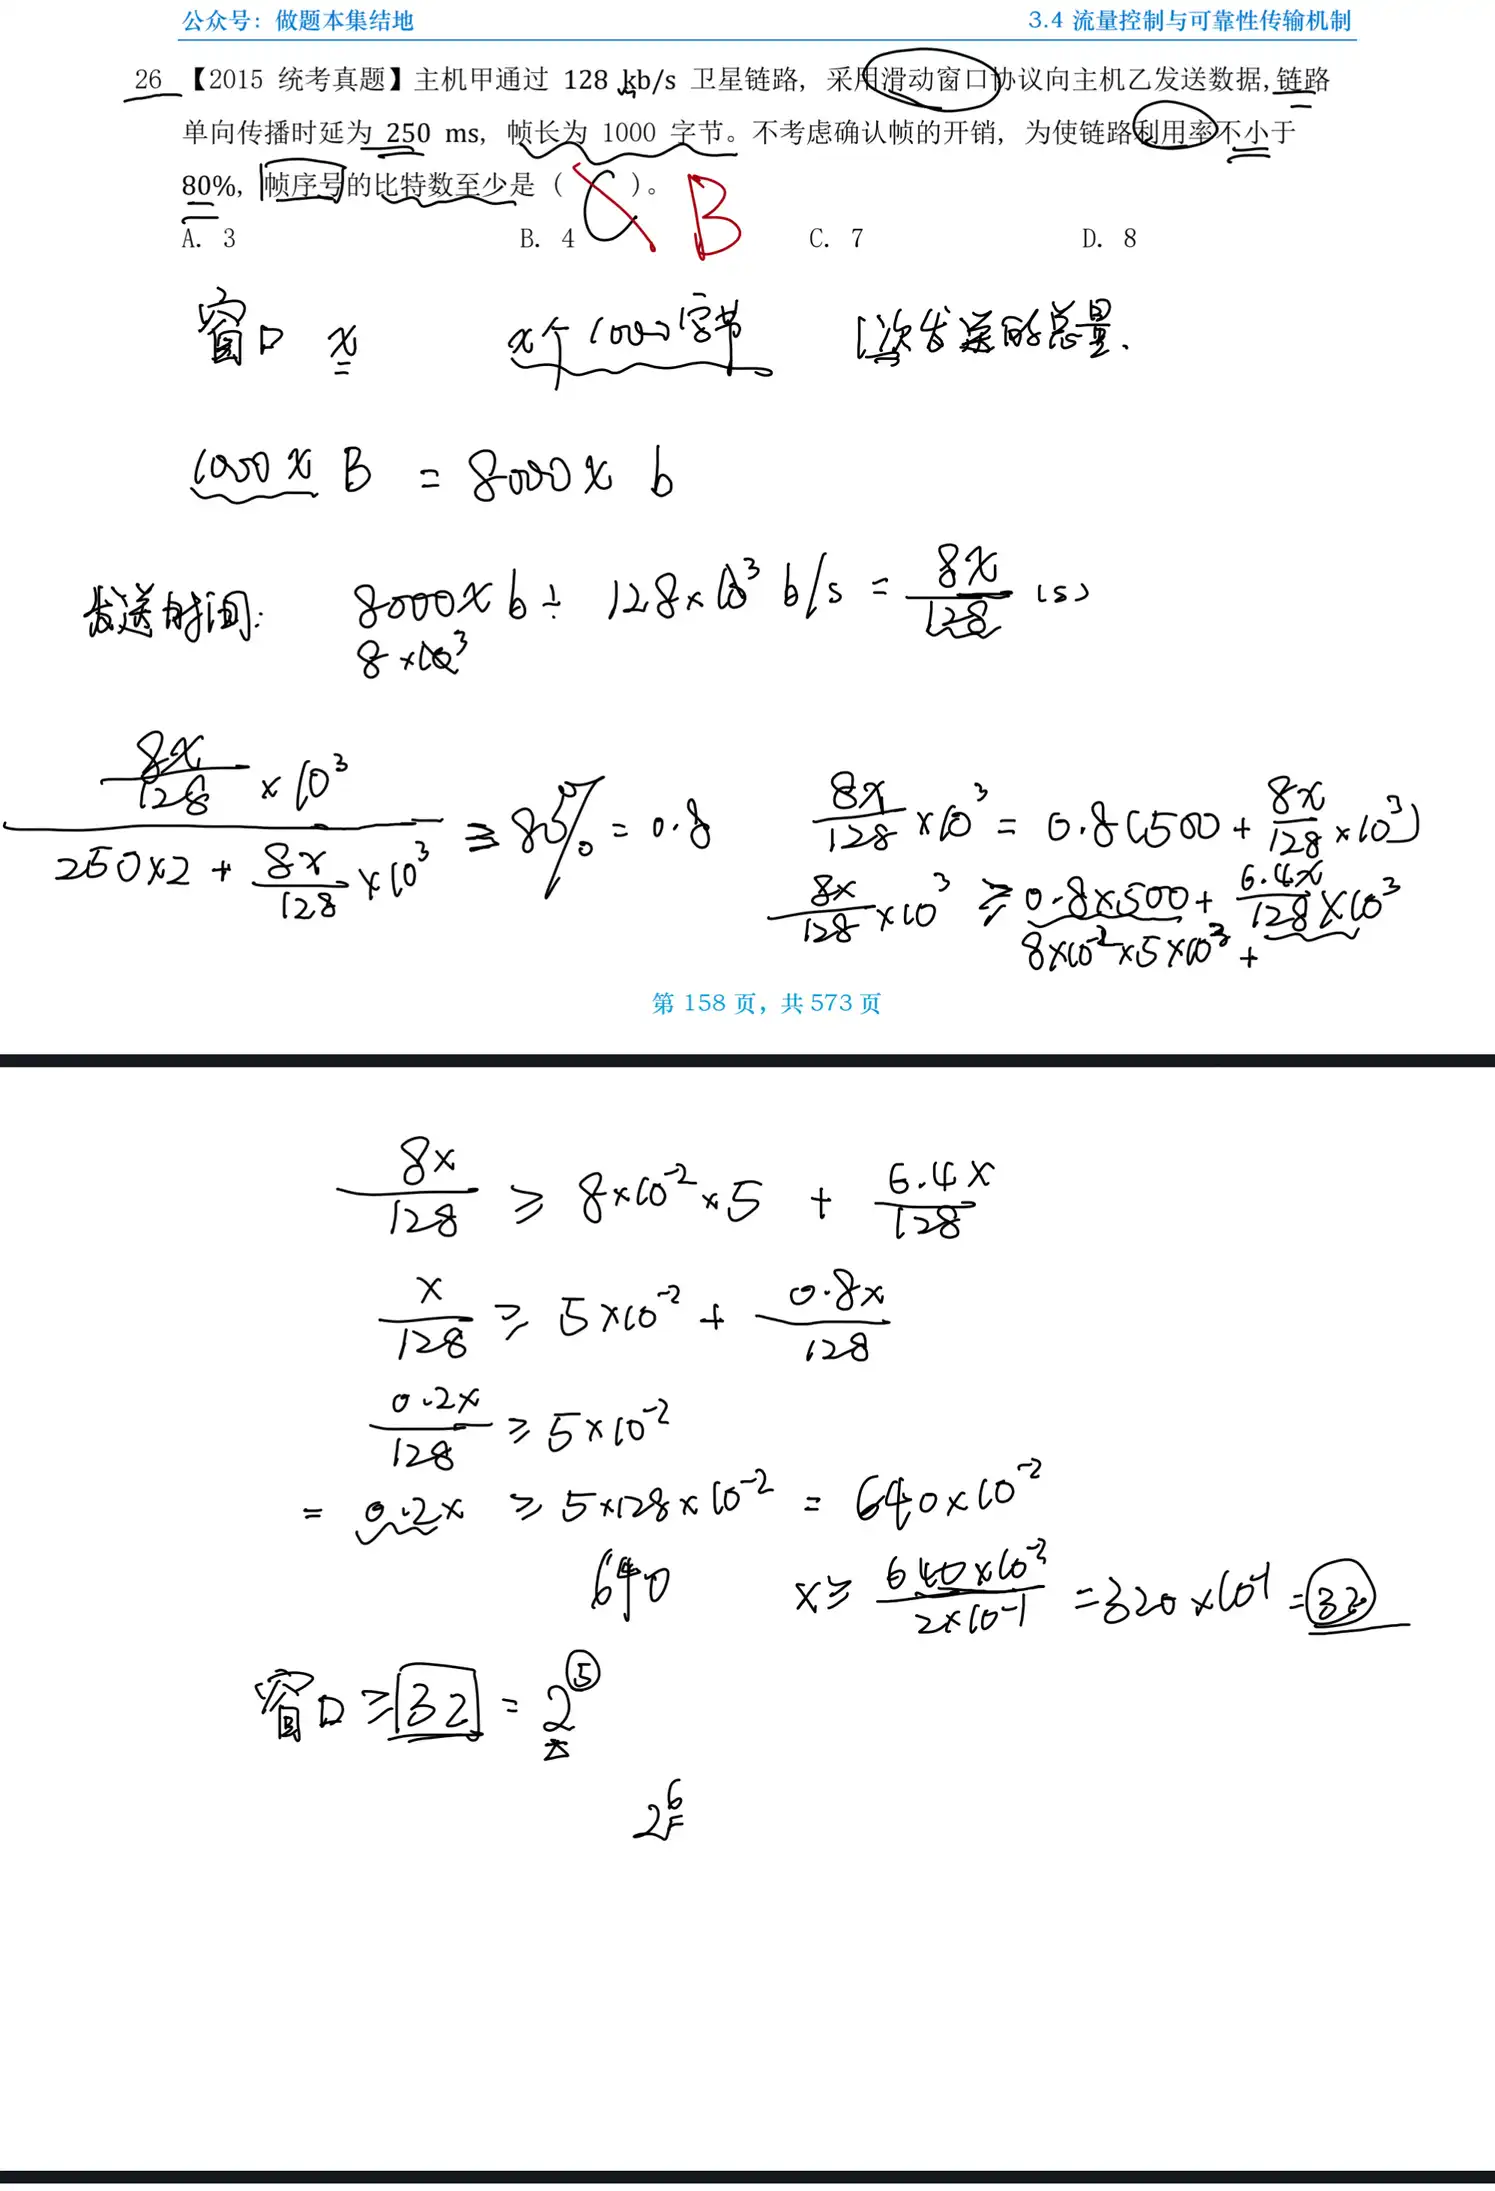 公众号：做题本集结地 3.4 流量控制与可靠性传输机制
26 【2015 统考真题】主机甲通过 128 kb/s 卫星链路，采用滑动窗口协议向主机乙发送数据,链路
单向传播时延为 250 ms，帧长为 1000 字节。不考虑确认帧的开销，为使链路利用率不小于
80%，帧序号的比特数至少是（ C ）。 B
A. 3 B. 4 C. 7 D. 8
窗口 x x个1000字节 1次发送的总量.
1000x B = 8000x b
发送时间: 8000x b ÷ 128×10³ b/s = 8x/128 (s)
8×10³
(8x/128 ×10³)/(250×2 + 8x/128 ×10³) ≥ 80% = 0.8 8x/128 ×10³ = 0.8(500 + 8x/128 ×10³)
8x/128 ×10³ ≥ 0.8×500 + 6.4x/128 ×10³
8×10⁻²×5×10³ +
第 158 页，共 573 页
8x/128 ≥ 8×10⁻²×5 + 6.4x/128
x/128 ≥ 5×10⁻² + 0.8x/128
0.2x/128 ≥ 5×10⁻²
= 0.2x ≥ 5×128×10⁻² = 640×10⁻²
640 x ≥ 640×10⁻²/2×10⁻¹ = 320×10⁻¹ = 32
窗口 ≥ 32 = 2⁵
2⁶